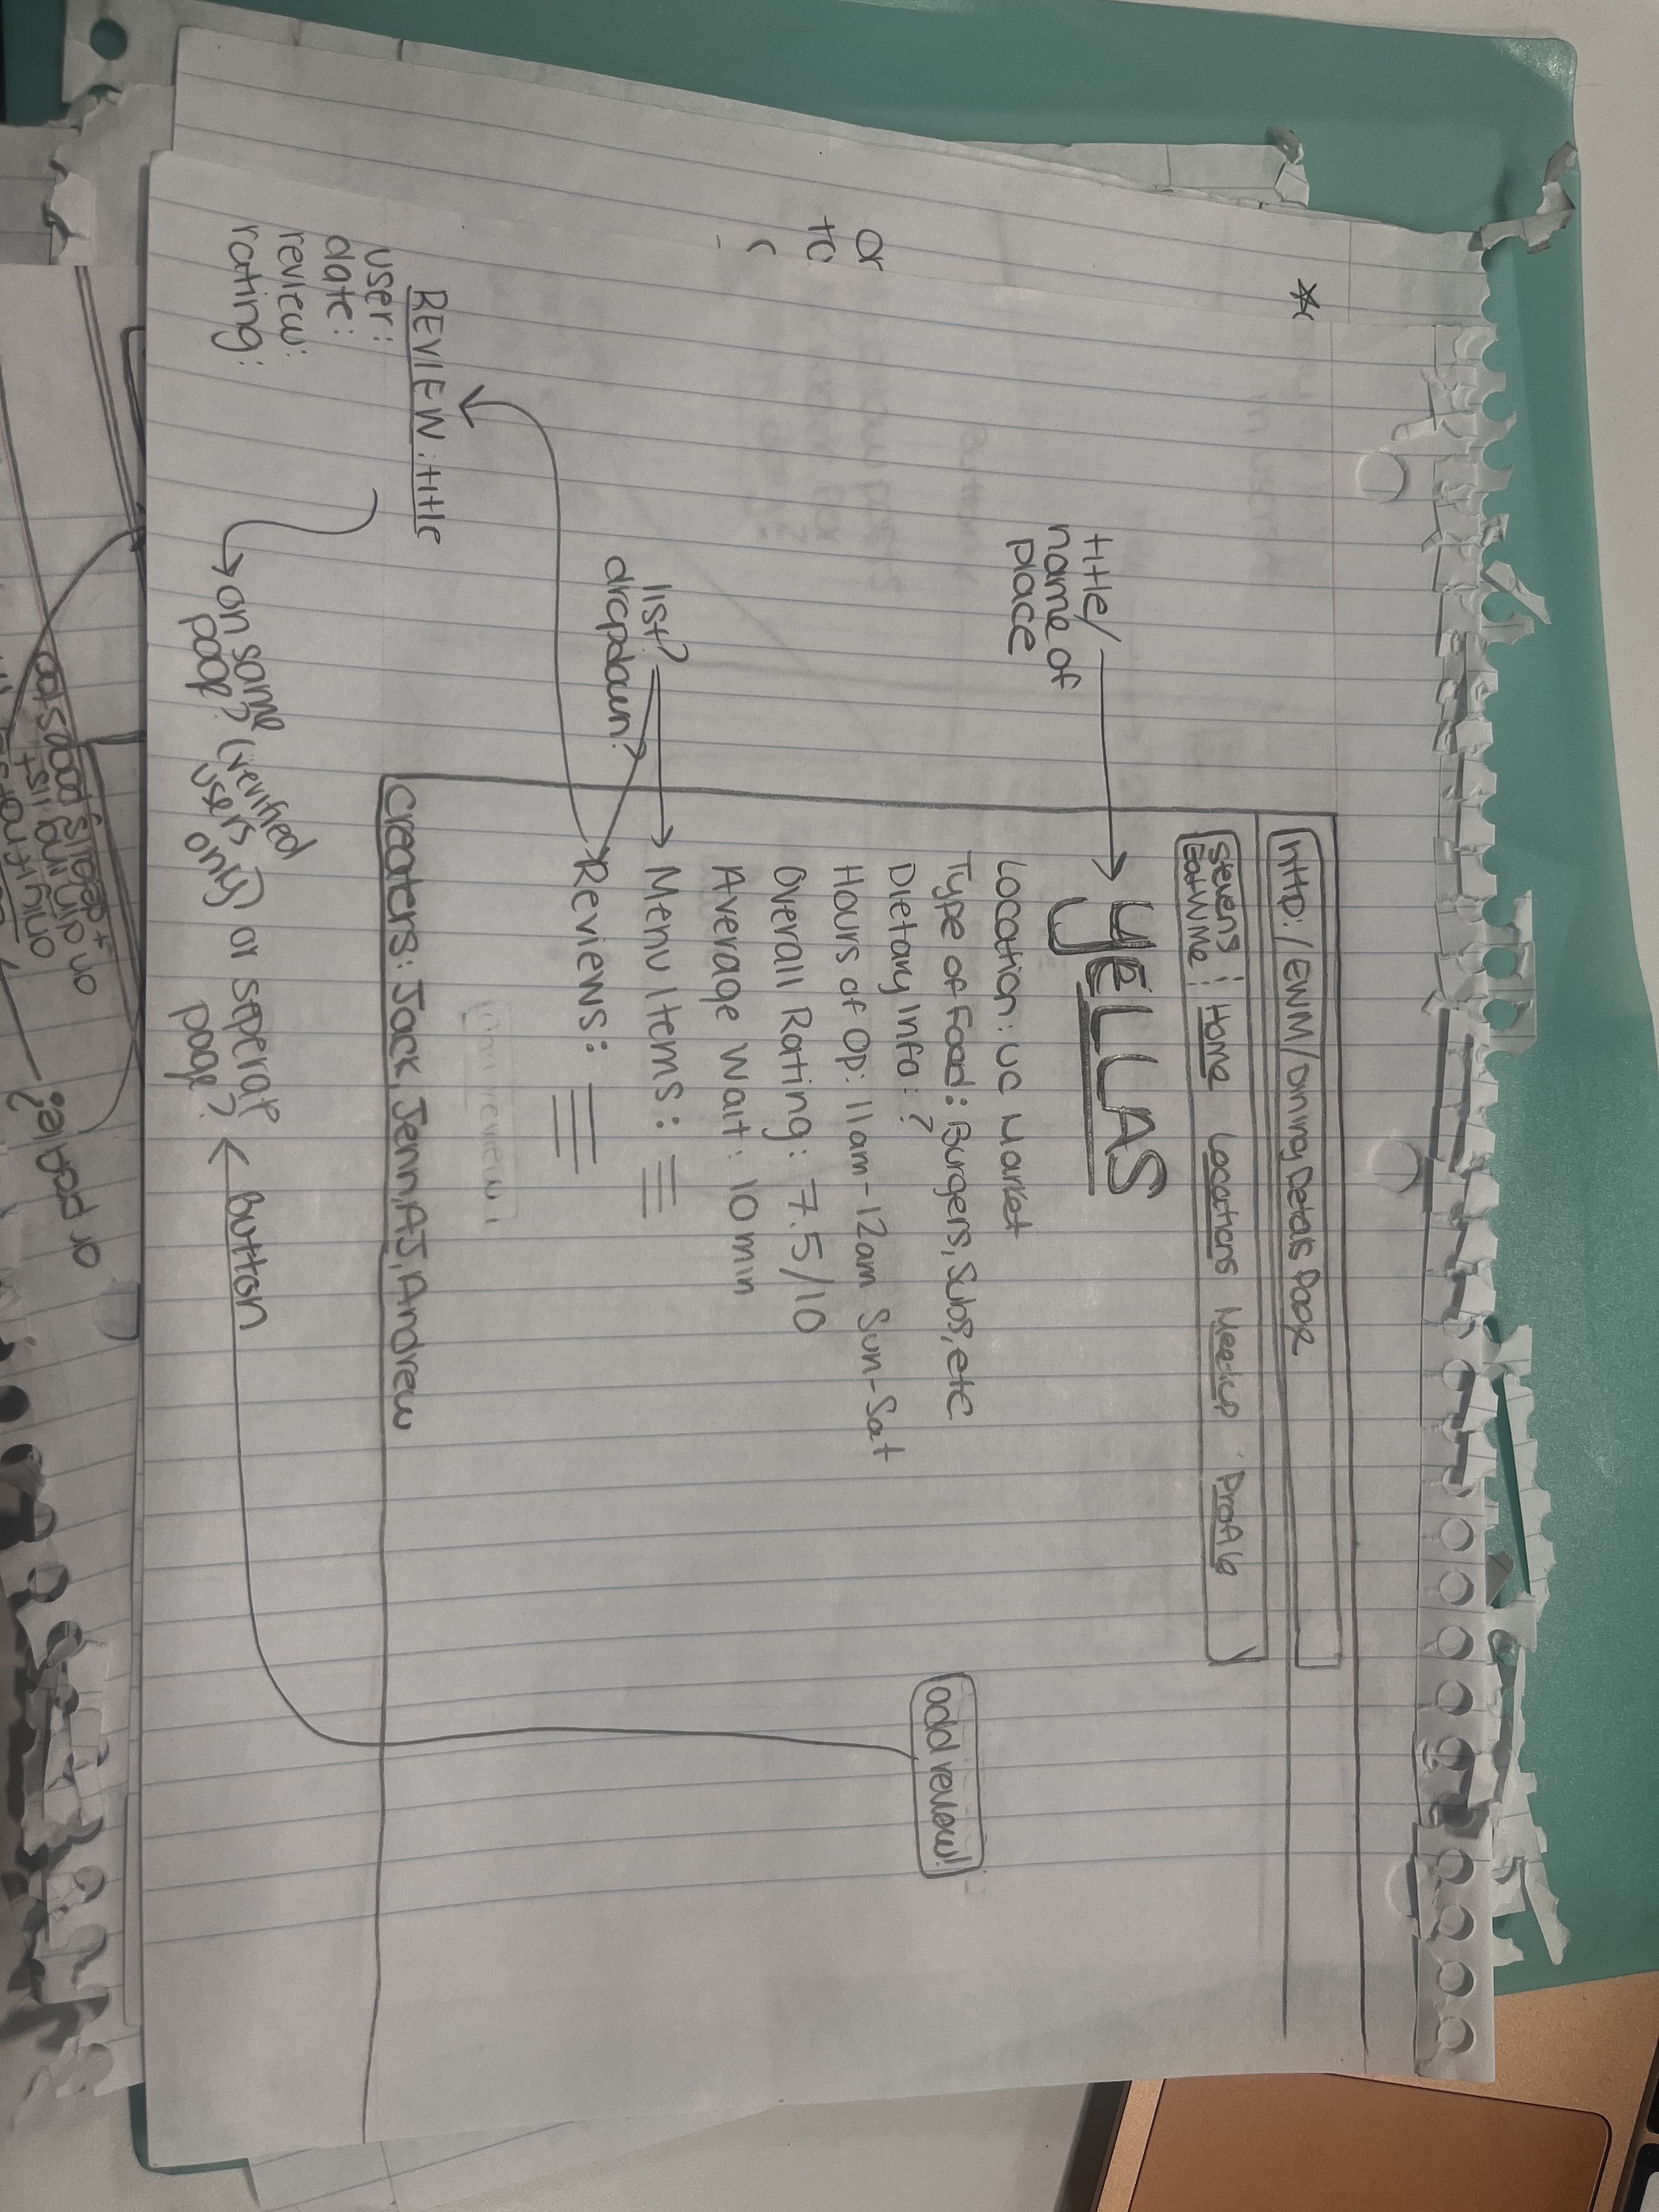 http:/EWM/Dining Details Page
Stevens
EatWMe
Home Locations Meetup Profile
title/
name of
place
YELLAS
Location: UC Market
Type of Food: Burgers, Subs, etc
Dietary Info: ?
Hours of Op: 11am-12am Sun-Sat
Overall Rating: 7.5/10
Average Wait: 10 min
list?
dropdown?
Menu Items:
Reviews:
add review!
Creaters: Jack, Jenn, AJ, Andrew
REVIEW: title
user:
date:
review:
rating:
on same
page? (verified
users
only) or seperat
page?
Button
or
to
or portie?